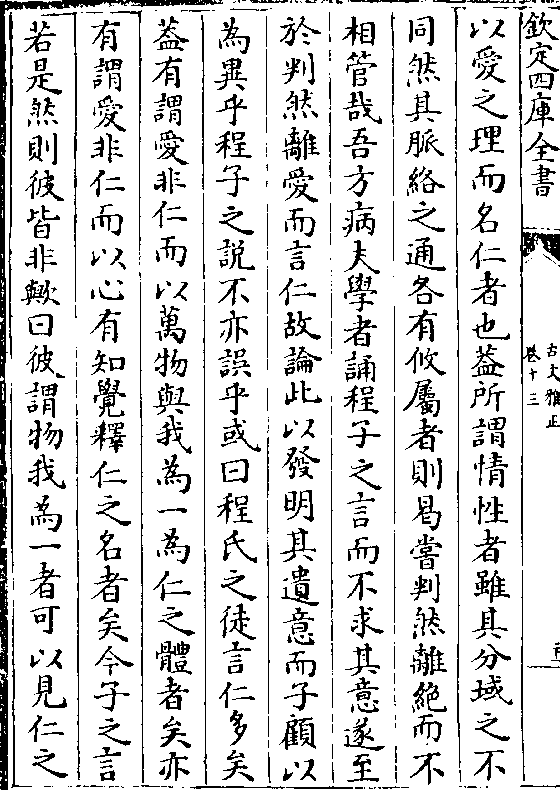 欽定四庫全書
古文雅正
卷十三
以愛之理而名仁者也葢所謂情性者雖其分域之不
同然其脈絡之通各有攸屬者則曷嘗判然離絶而不
相管哉吾方病夫學者誦程子之言而不求其意遂至
於判然離愛而言仁故論此以發明其遺意而子顧以
為異乎程子之說不亦誤乎或曰程氏之徒言仁多矣
葢有謂愛非仁而以萬物與我為一為仁之體者矣亦
有謂愛非仁而以心有知覺釋仁之名者矣今子之言
若是然則彼皆非歟曰彼謂物我為一者可以見仁之